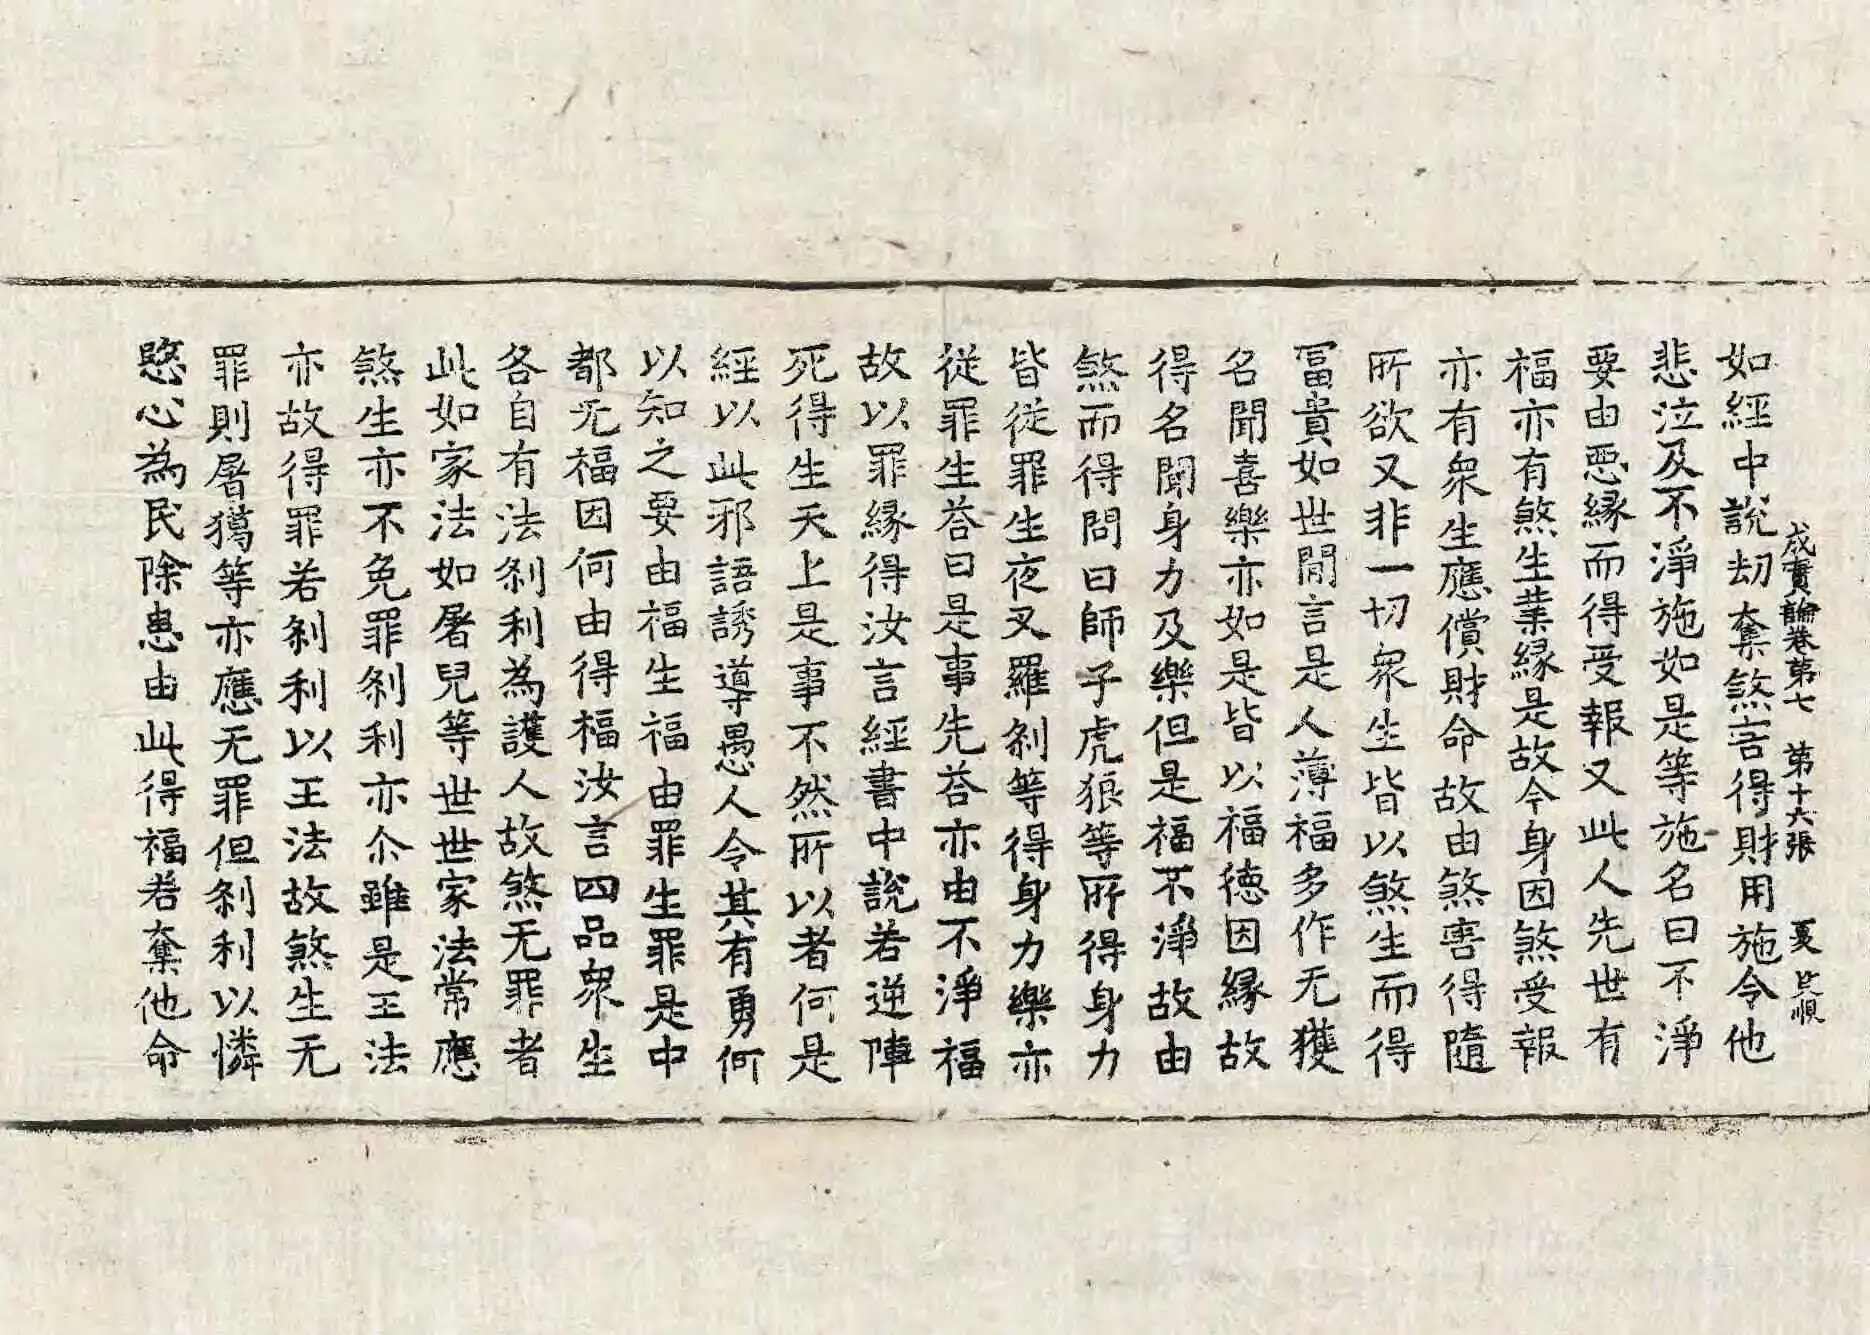 成實論卷第七　第十六張　夏
如經中說劫奪煞害得財用施令他
悲泣及不淨施如是等施名曰不淨
要由惡緣而得受報又此人先世有
福亦有煞生業緣是故今身因煞受報
亦有衆生應償財命故由煞害得隨
所欲又非一切衆生皆以煞生而得
冨貴如世閒言是人薄福多作无獲
名聞喜樂亦如是皆以福德因緣故
得名聞身力及樂但是福不淨故由
煞而得問曰師子虎狼等所得身力
皆從罪生夜叉羅剎等得身力樂亦
從罪生荅曰是事先荅亦由不淨福
故以罪緣得汝言經書中說若逆陣
死得生天上是事不然所以者何是
經以此邪語誘導愚人令其有勇何
以知之要由福生福由罪生罪是中
都无福因何由得福汝言四品衆生
各自有法剎利為護人故煞无罪者
此如家法如屠兒等世世家法常應
煞生亦不免罪剎利亦尒雖是王法
亦故得罪若剎利以王法故煞生无
罪則屠獦等亦應无罪但剎利以憐
愍心為民除患由此得福若奪他命